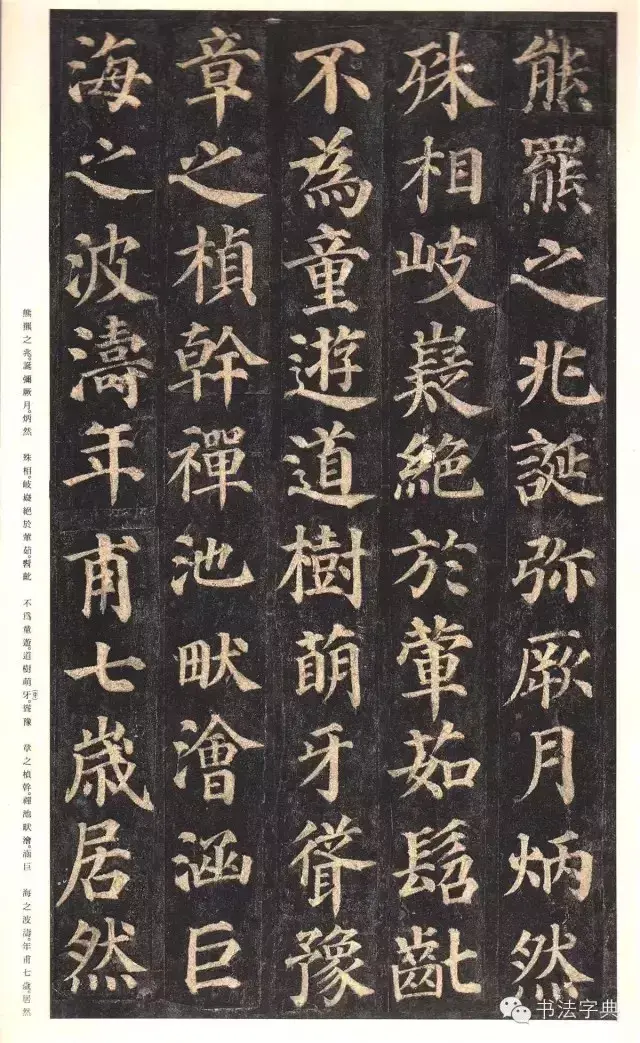 熊羆之兆誕弥厥月炳然
殊相岐嶷絕於葷茹髫齔
不為童遊道樹萌牙聳豫
章之楨幹禪池畎澮涵巨
海之波濤年甫七歲居然
熊羆之兆。誕彌厥月。炳然　殊相。岐嶷絕於葷茹。髫齔　不爲童遊。道樹萌牙(芽)。聳豫　章之楨幹。禪池畎澮。涵巨　海之波濤。年甫七歲。居然
书法字典